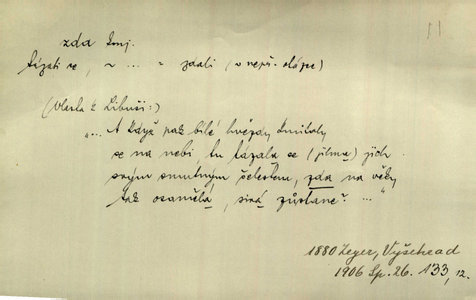 zda konj.
tázati se, ~ ... = zdali (v nepř. otázce)
(Vlasta k Libuši:)
"... A když pak bílé hvězdy kmitaly
se na nebi, tu tázala se (jilma) jich
svým smutným šelestem, zda na věky
tak osamělá, sirá zůstane? ..."
1880 Zeyer, Vyšehrad
1906 Sp. 26. 133, 12.